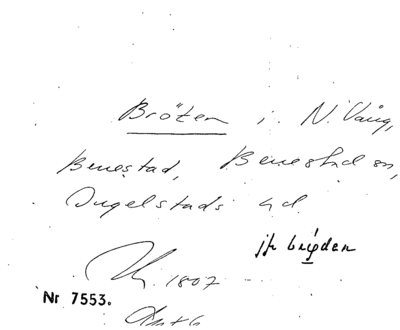 Bröten i N. Vång,
Benestad, Benestad sn,
Ingelstads hd.
jfr bröden
1807
Nr 7553.